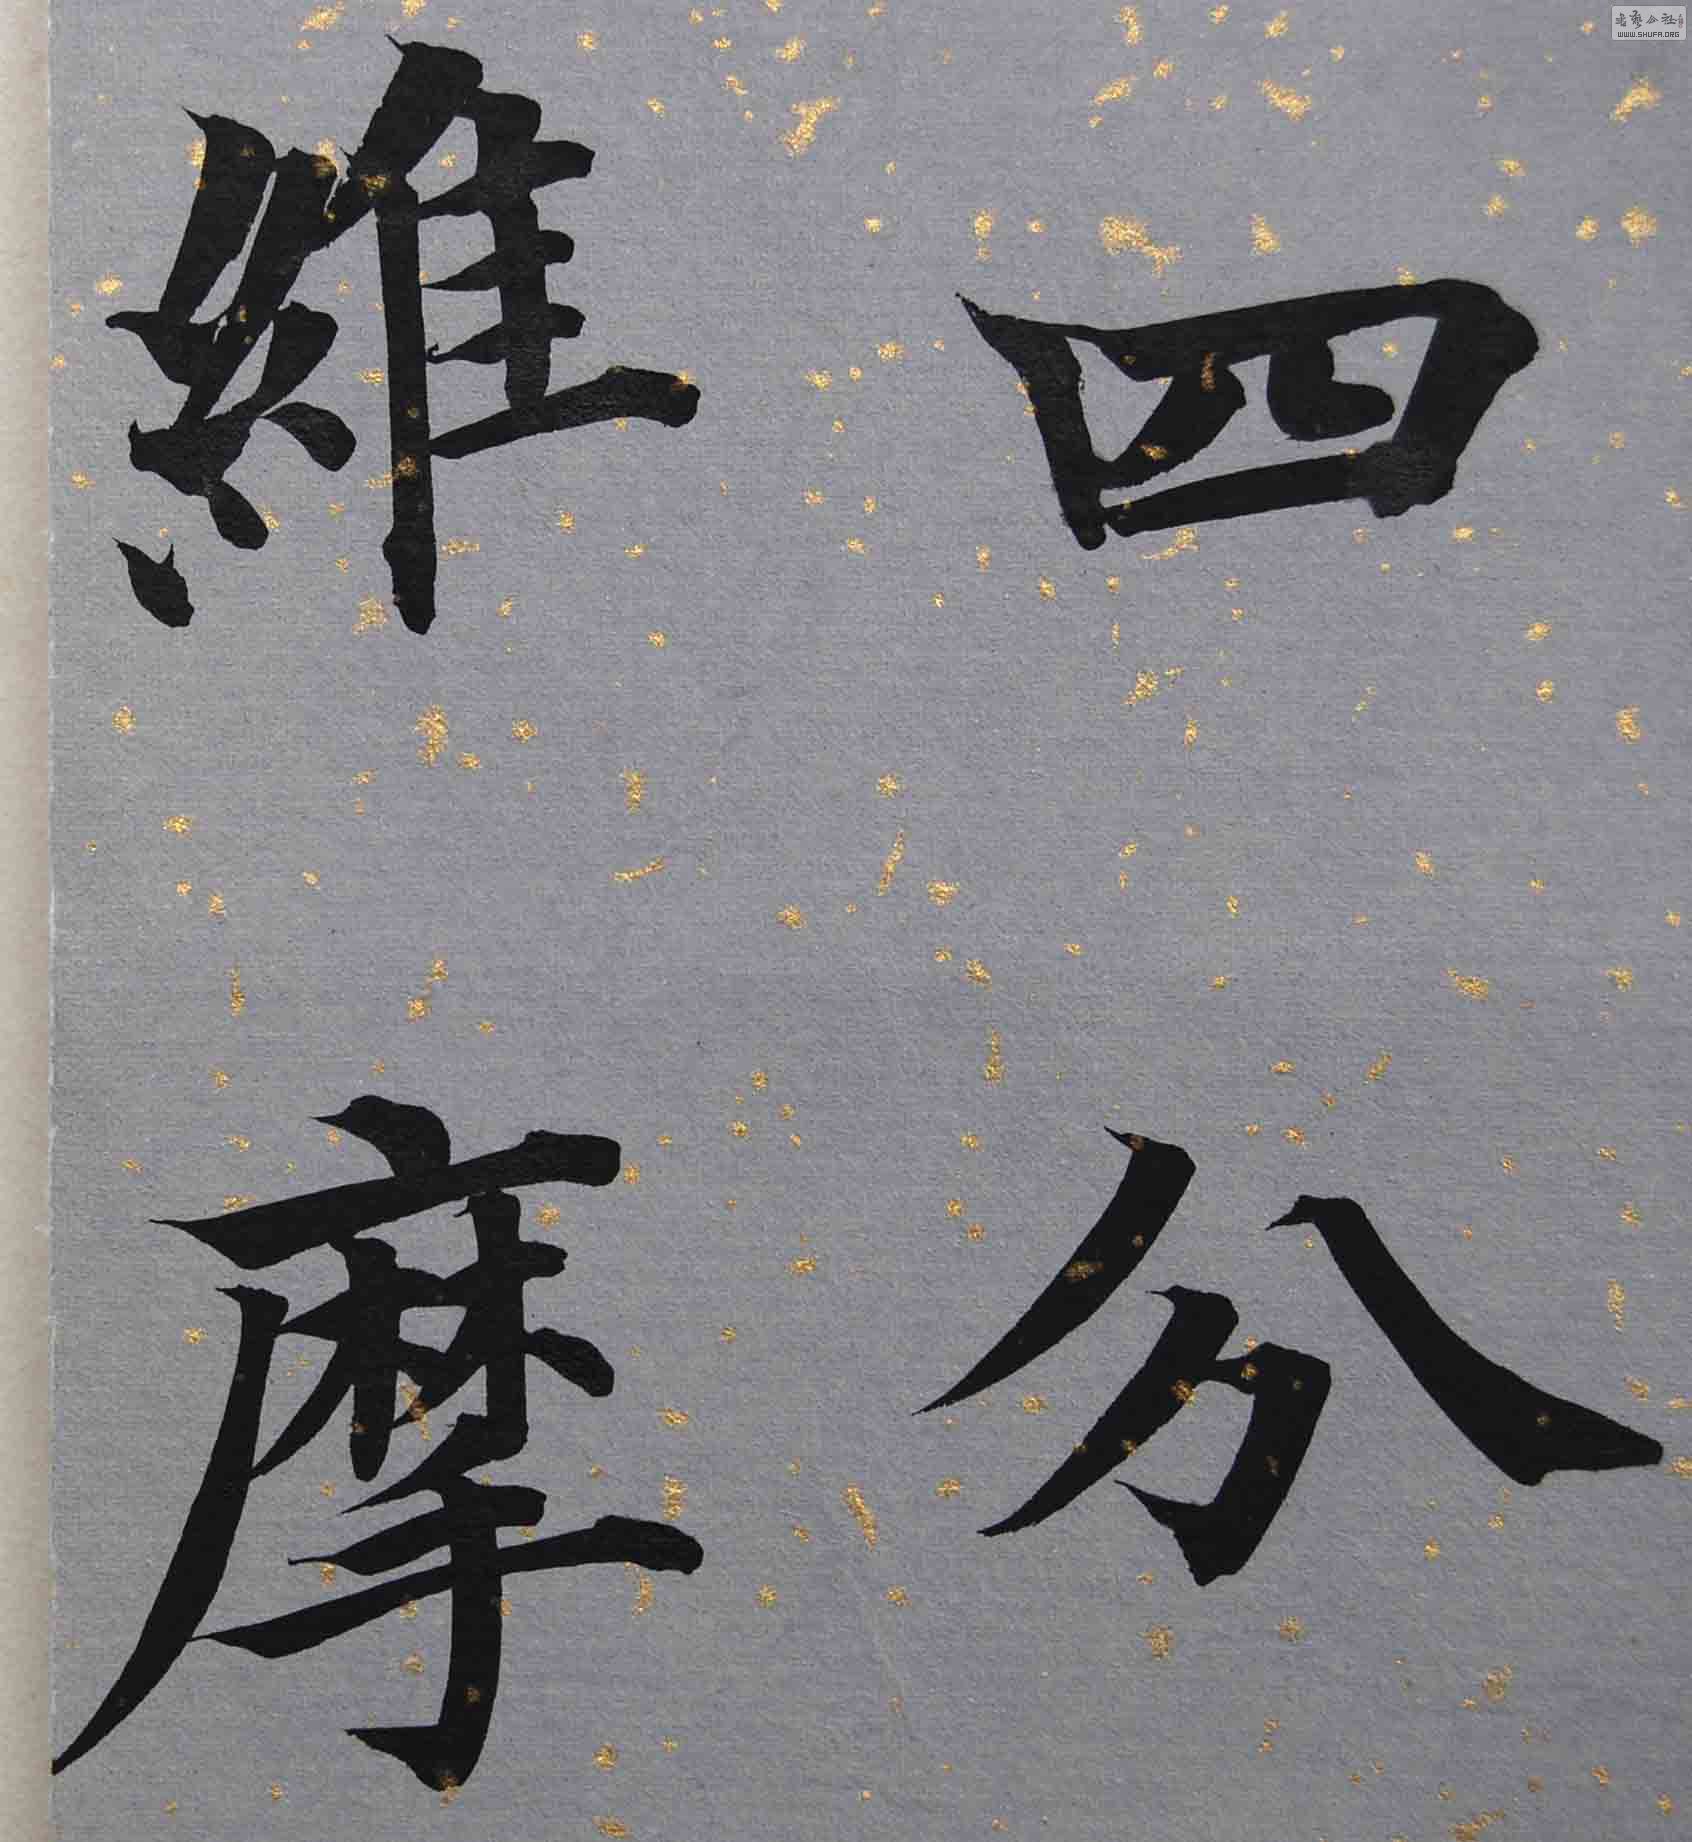 四分
維摩
書藝公社
WWW.SHUFA.ORG